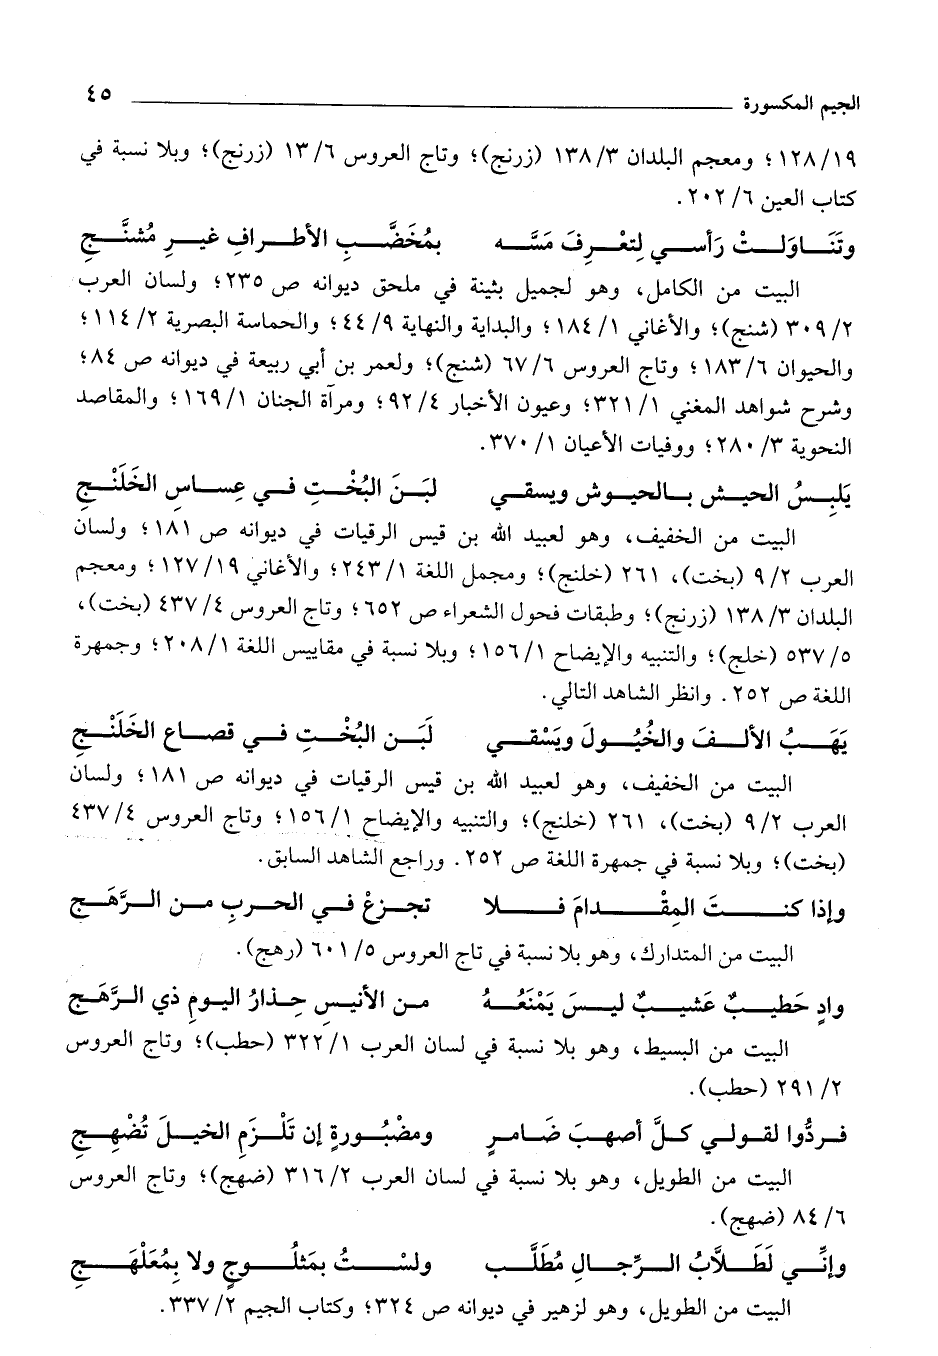 الجيم المكسورة ٤٥
١٢٨/١٩؛ ومعجم البلدان ١٣٨/٣ (زرنج)؛ وتاج العروس ١٣/٦ (زرنج)؛ وبلا نسبة في
كتاب العين ٢٠٢/٦.
وتَنَاولتْ رَأسي لِتعْرِفَ مَسَّه بمُخَضَّبِ الأطرافِ غيرِ مُشنَّجِ
البيت من الكامل، وهو لجميل بثينة في ملحق ديوانه ص ٢٣٥؛ ولسان العرب
٣٠٩/٢ (شنج)؛ والأغاني ١٨٤/١؛ والبداية والنهاية ٤٤/٩؛ والحماسة البصرية ١١٤/٢؛
والحيوان ١٨٣/٦؛ وتاج العروس ٦٧/٦ (شنج)؛ ولعمر بن أبي ربيعة في ديوانه ص ٨٤؛
وشرح شواهد المغني ٣٢١/١؛ وعيون الأخبار ٩٢/٤؛ ومرآة الجنان ١٦٩/١؛ والمقاصد
النحوية ٢٨٠/٣؛ ووفيات الأعيان ٣٧٠/١.
يَلبِسُ الجيش بالجيوش ويسقي لبَنَ البُخْتِ في عِساسِ الخَلَنْجِ
البيت من الخفيف، وهو لعبيد الله بن قيس الرقيات في ديوانه ص ١٨١؛ ولسان
العرب ٩/٢ (بخت)، ٢٦١ (خلنج)؛ ومجمل اللغة ٢٤٣/١؛ والأغاني ١٢٧/١٩؛ ومعجم
البلدان ١٣٨/٣ (زرنج)؛ وطبقات فحول الشعراء ص ٦٥٢؛ وتاج العروس ٤٣٧/٤ (بخت)،
٥٣٧/٥ (خلج)؛ والتنبيه والإيضاح ١٥٦/١؛ وبلا نسبة في مقاييس اللغة ٢٠٨/١؛ وجمهرة
اللغة ص ٢٥٢. وانظر الشاهد التالي.
يَهَبُ الألفَ والخُيُولَ ويَسْقي لَبَن البُخْتِ في قصاع الخَلَنْجِ
البيت من الخفيف، وهو لعبيد الله بن قيس الرقيات في ديوانه ص ١٨١؛ ولسان
العرب ٩/٢ (بخت)، ٢٦١ (خلنج)؛ والتنبيه والإيضاح ١٥٦/١؛ وتاج العروس ٤٣٧/٤
(بخت)؛ وبلا نسبة في جمهرة اللغة ص ٢٥٢. وراجع الشاهد السابق.
وإذا كنتَ المِقْدامَ فلا تجزعْ في الحربِ من الرَّهَجِ
البيت من المتدارك، وهو بلا نسبة في تاج العروس ٦٠١/٥ (رهج).
وادٍ حَطيبٌ عَشيبٌ ليسَ يَمْنَعُهُ من الأنيسِ حِذارُ اليومِ ذي الرَّهَجِ
البيت من البسيط، وهو بلا نسبة في لسان العرب ٣٢٢/١ (حطب)؛ وتاج العروس
٢٩١/٢ (حطب).
فردُّوا لقولي كلَّ أصهبَ ضَامرٍ ومضْبُورةٍ إن تَلْزَمِ الخيلَ تُضْهِجِ
البيت من الطويل، وهو بلا نسبة في لسان العرب ٣١٦/٢ (ضهج)؛ وتاج العروس
٨٤/٦ (ضهج).
وإنِّي لَطَلاَّبُ الرِّجالِ مُطَلَّب ولستُ بمَثلُوجٍ ولا بِمُعَلْهَجِ
البيت من الطويل، وهو لزهير في ديوانه ص ٣٢٤؛ وكتاب الجيم ٣٣٧/٢.